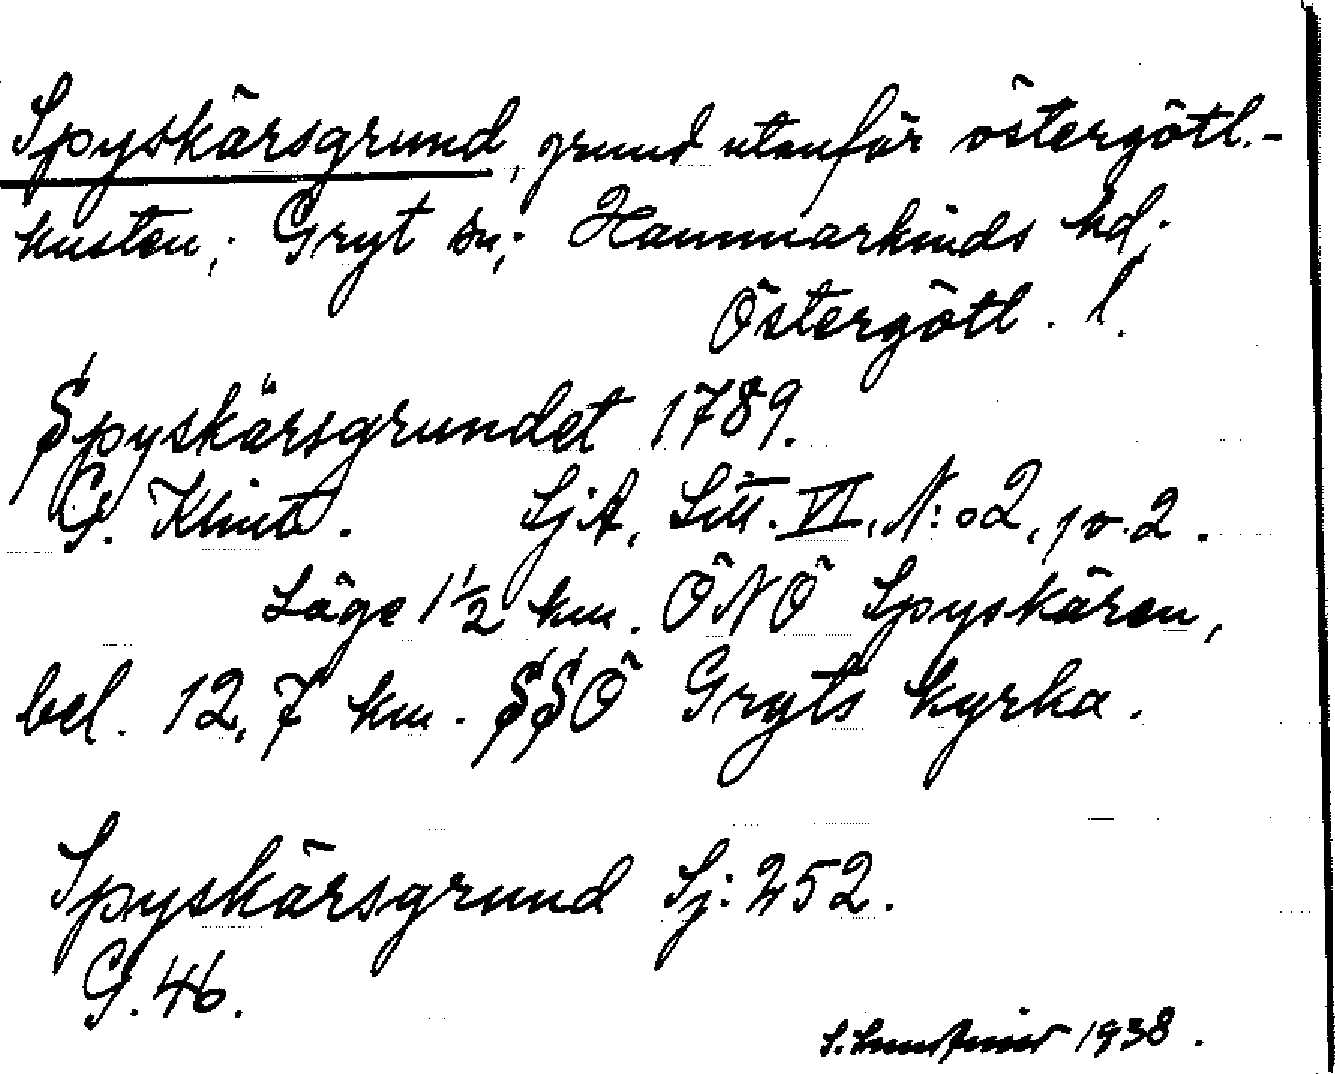 Spyskärsgrund, grund utanför östergötl.-
kusten; Gryt sn; Hammarkinds hd;
Östergötl. l.
Spyskärsgrundet 1789.
G. Klint. SjA, Litt. VI, N:o 2, p. 2.
Läge 1 1/2 km. ÖNÖ Spyskären,
bel. 12,7 km. SSÖ Gryts kyrka.
Spyskärsgrund Sj: 252.
G. 46.
S. 1938.